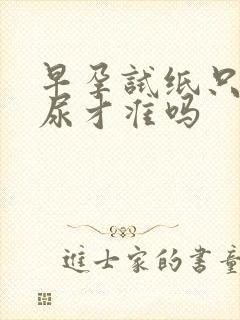 早孕試纸只
尿才准吗
进士家的书童